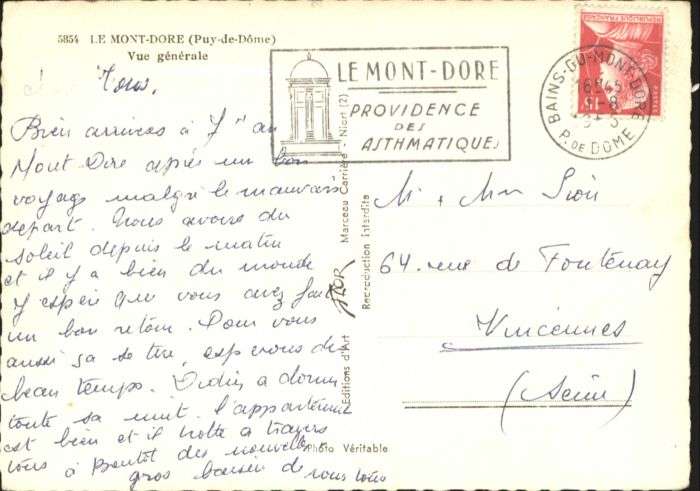 5854 LE MONT-DORE (Puy-de-Dôme)
Vue générale
LE MONT-DORE
PROVIDENCE
DES
ASTHMATIQUES
BAINS-DU-MONT-DORE
P. DE DOME
Bien arrivés à 7h au
Mont Dore après un bon
voyage malgré le mauvais
départ. Nous avons du
soleil depuis le matin
et il y a bien du monde
J'espère que vous avez fait
un bon retour. Pour vous
aussi sa se tire, esperons de
beau temps. Didier a dormi
toute sa nuit. l'appartement
est bien et il trotte à travers
tous à Bientôt des nouvelles
gros baisers de nous tous
Editions d'Art Marceau Carrière - Niort (2)
Reproduction interdite
Photo Véritable
M. & Mme
64. rue de Fontenay
Vincennes
(Seine)